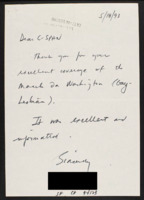 5/10/93
Dear C-SPAN
Thank you for your
excellent coverage of the
March on Washington (Gay-
Lesbian).
It was excellent and
informative.
Sincerely